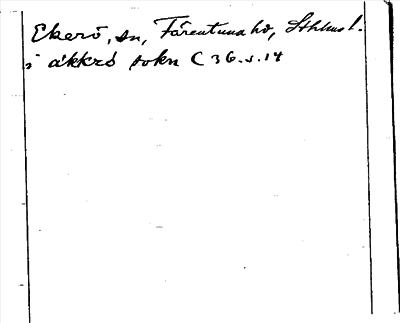 Ekerö, sn, Färentuna hd, Sthlms l.
i åkkrö sokn C 36. s. 14